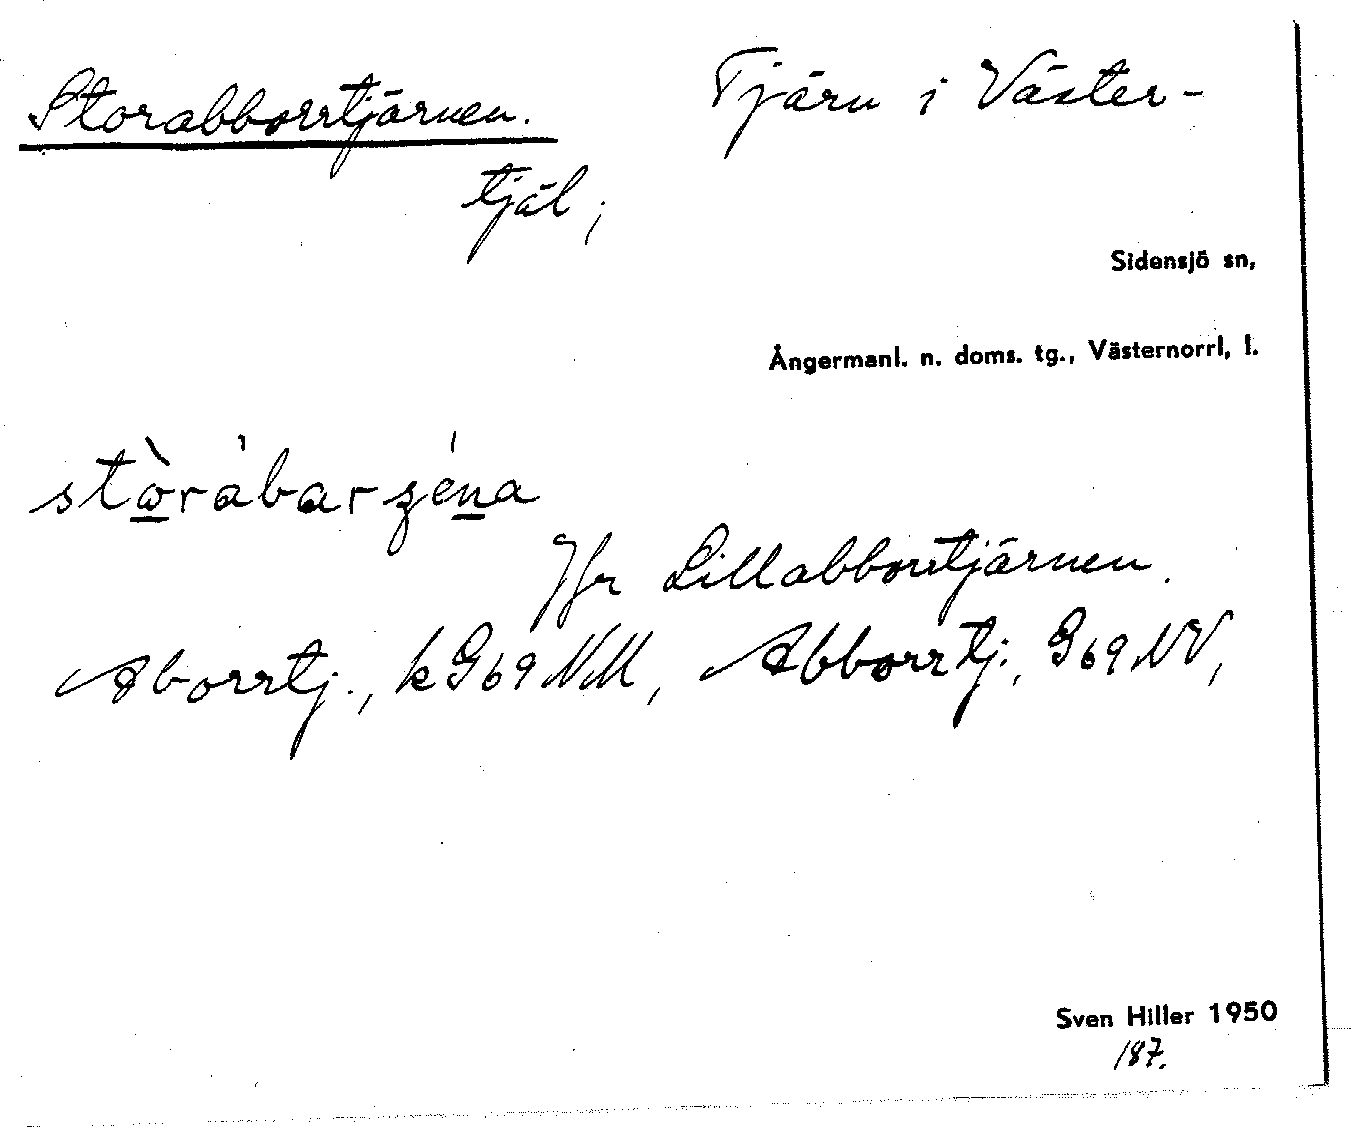 Storabborrtjärnen. Tjärn i Väster-
tjäl;
Sidensjö sn,
Ångermanl. n. doms. tg., Västernorrl, l.
Jfr Lillabborrtjärnen.
Aborrtj., kG69NM, Abborrtj., G69NV,
Sven Hiller 1950
187.